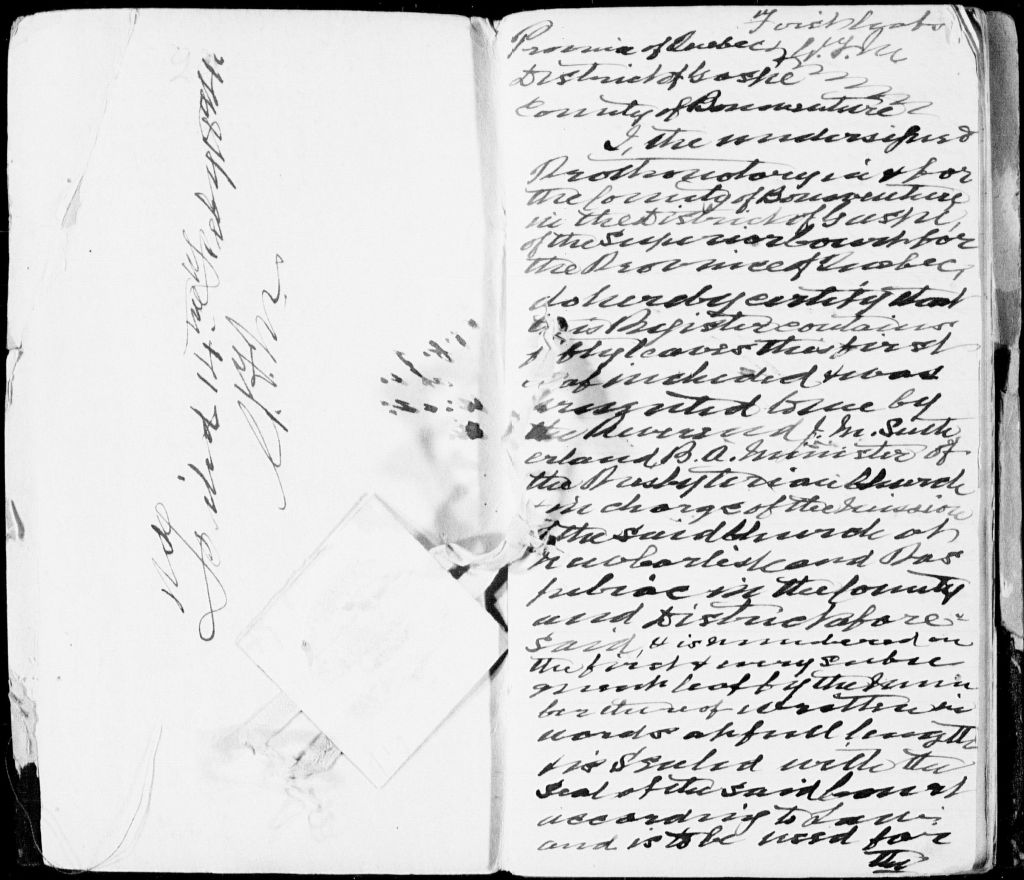 No 2
Sealed 14th July 1894
First leaf
Province of Quebec
District of Gaspé
County of Bonaventure
I, the undersigned
Prothonotary in & for
the County of Bonaventure
in the District of Gaspé,
of the Superior Court for
the Province of Quebec,
do hereby certify that
this Register contains
fifty leaves this first
leaf included & was
presented to me by
the Reverend J. M. Suth
erland B. A. Minister of
the Presbyterian Church
& in charge of the Mission
of the said Church at
New Carlisle and Pas
pebiac in the County
and District afore-
said, & is numbered on
the first & every subse
quent leaf by the num
ber thereof written in
words at full length
& is Sealed with the
seal of the said Court
according to Law;
and is to be used for
the